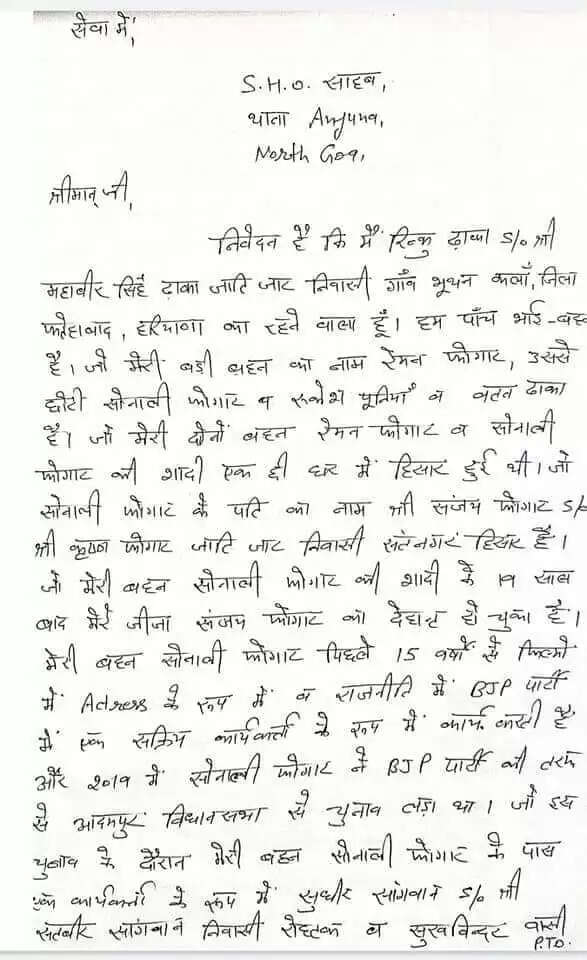 सेवा में,
S.H.O. साहब,
थाना Anjuna,
North Goa,
श्रीमान् जी,
निवेदन है कि मैं रिन्कु ढ़ाका S/o श्री
महाबीर सिहँ ढ़ाका जाति जाट निवासी गाँव भूथन कलाँ, जिला
फतेहाबाद, हरियाणा का रहने वाला हूँ। हम पाँच भाई-बहन
है। जो मेरी बडी बहन का नाम रेमन फोगाट, उससे
छोटी सोनाली फोगाट व रूकेश पूनियाँ व वतन ढाका
है। जो मेरी दोनों बहन रेमन फोगाट व सोनाली
फोगाट की शादी एक ही घर में हिसार हुई थी। जो
सोनाली फोगाट के पति का नाम श्री संजय फोगाट S/o
श्री कृष्ण फोगाट जाति जाट निवासी संतनगर हिसार है।
जो मेरी बहन सोनाली फोगाट की शादी के 19 साल
बाद मेरे जीजा संजय फोगाट का देहान्त हो चुका है।
मेरी बहन सोनाली फोगाट पिछले 15 वर्षों से फिल्मो
में Actress के रूप में व राजनीति में BJP पार्टी
में एक सक्रिय कार्यकर्ता के रूप में कार्य करती है
और 2019 में सोनाली फोगाट ने BJP पार्टी की तरफ
से आदमपुर विधानसभा से चुनाव लड़ा था। जो इस
चुनाव के दौरान मेरी बहन सोनाली फोगाट के पास
एक कार्यकर्ता के रूप में सुधीर सांगवान S/o श्री
सतबीर सांगवान निवासी रोहतक व सुखविन्दर वासी
P.T.O.